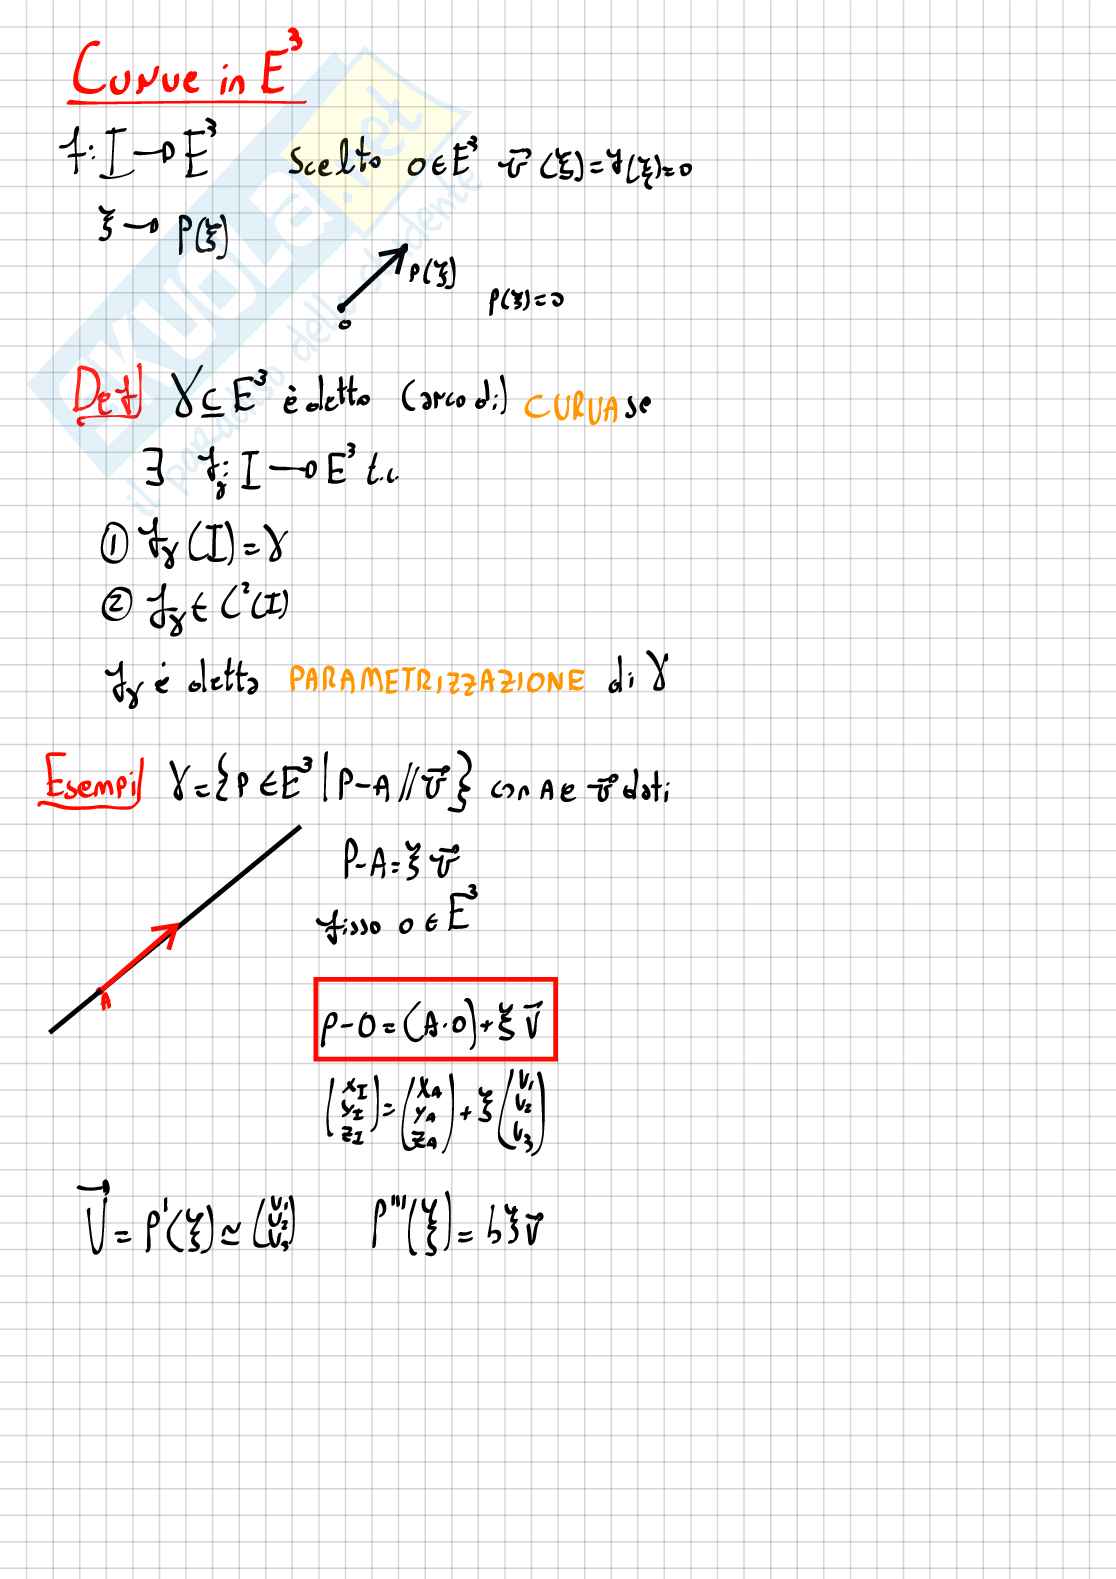 Curve in E³
f: I → E³ Scelto O ∈ E³ v⃗(ξ) = f(ξ) = 0
ξ → P(ξ)
P(ξ)
O
P(ξ) = 0
SKUOLA.net
il paradiso dello studente
Def] γ ⊆ E³ è detto (arco di) CURVA se
∃ f_γ: I → E³ t.c
① f_γ(I) = γ
② f_γ ∈ C²(I)
f_γ è detta PARAMETRIZZAZIONE di γ
Esempi] γ = {P ∈ E³ | P-A // v⃗} con A e v⃗ dati
P-A = ξ v⃗
fisso O ∈ E³
A
P-O = (A·O) + ξ v⃗
(x_I y_I z_I) = (x_A y_A z_A) + ξ (v₁ v₂ v₃)
V⃗ = P'(ξ) ≃ (v₁ v₂ v₃) P'''(ξ) = 6ξ v⃗